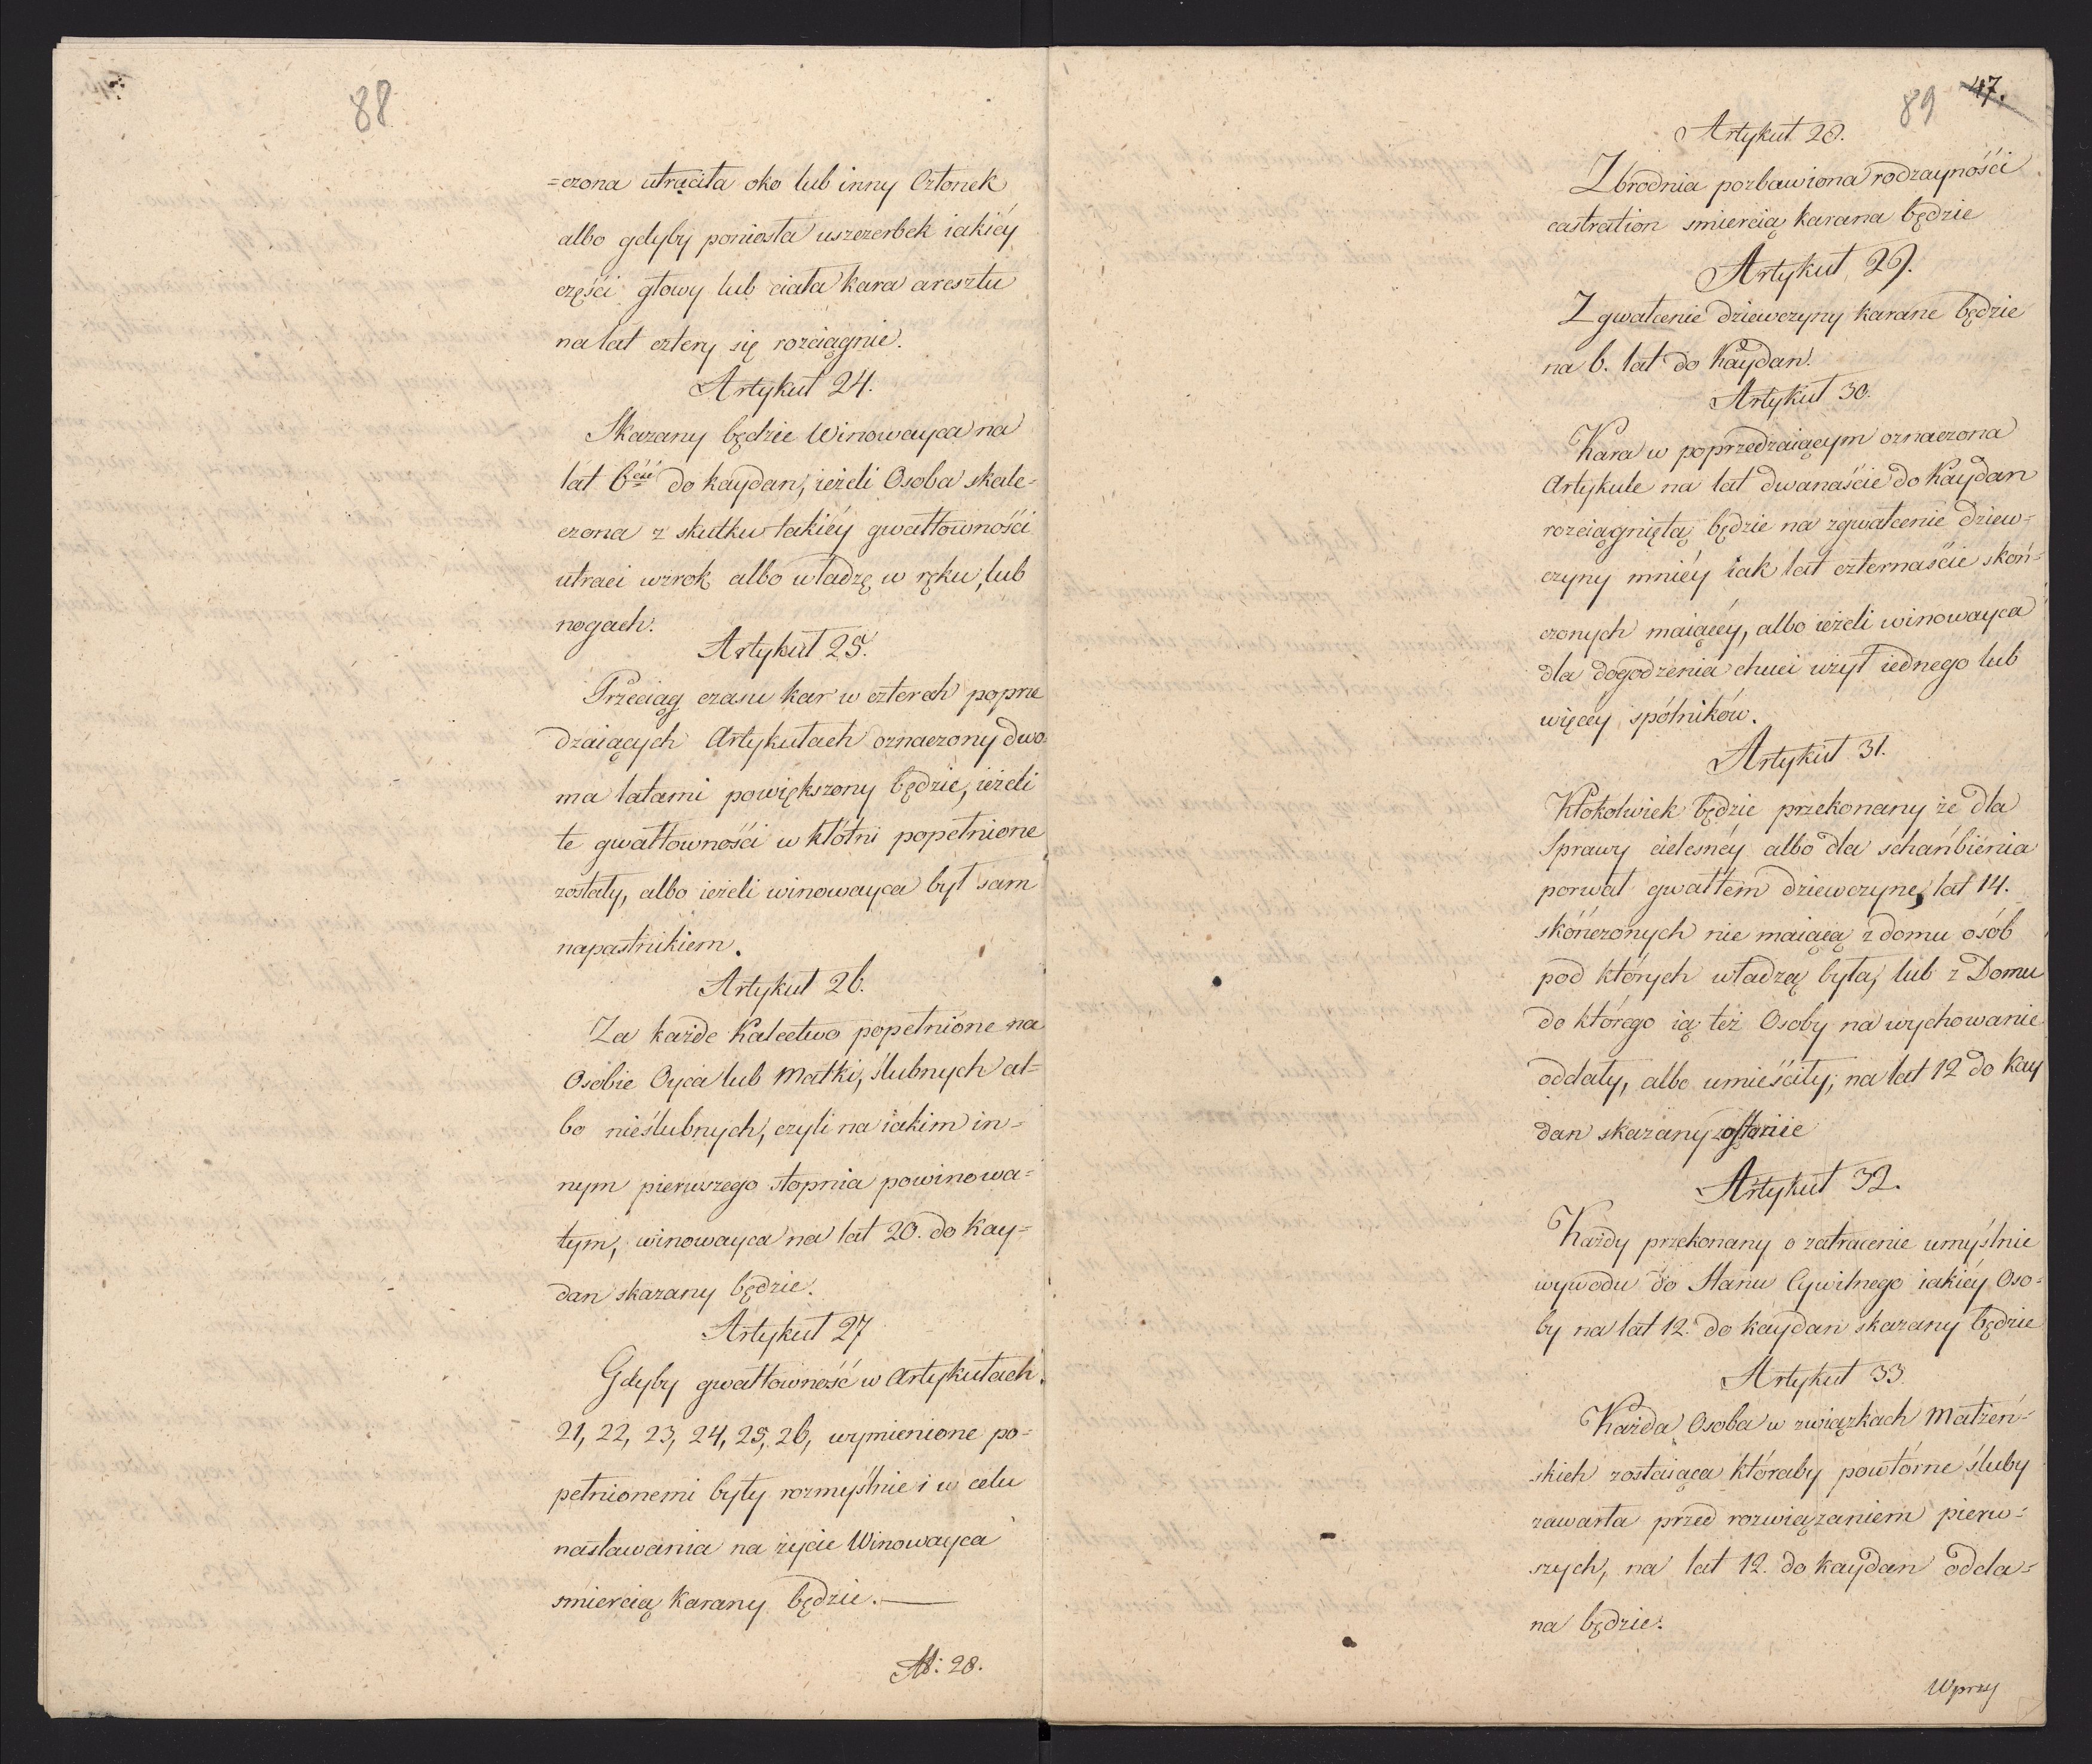 88
=czona utraciła oko lub inny Członek
albo gdyby poniosła uszczerbek iakiéy
części głowy lub ciała kara aresztu
na lat cztery się rozciągnie.
Artykuł 24.
Skazany będzie Winowayca na
lat 6ść do kaydan, ieżeli Osoba skale=
czona z skutku takiéy gwałtowności
utraci wzrok albo władzę w ręku, lub
nogach.
Artykuł 25.
Przeciąg czasu kar w czterech poprze
dzaiących Artykułach oznaczony dwo
ma latami powiększony będzie, ieżeli
te gwałtowności w kłótni popełnione
zostały, albo ieżeli winowayca był sam
napastnikiem.
Artykuł 26.
Za każde Kalectwo popełnione na
Osobie Oyca lub Matki, ślubnych al=
bo nieślubnych, czyli na iakim in=
nym pierwszego stopnia powinowa=
tym, winowayca na lat 20. do kay=
dan skazany będzie.
Artykuł 27
Gdyby gwałtowność w Artykułach
21, 22, 23, 24, 25, 26, wymienione po=
pełnionemi były rozmyślnie i w celu
nastawania na życie Winowayca
smiercią karany będzie.
At: 28.
89 47.
Artykuł 28.
Zbrodnia pozbawiona rodzayności
castration smiercią karana będzie
Artykuł 29.
Zgwałcenie dziewczyny karane będzie
na 6. lat do Kaydan.
Artykuł 30.
Kara w poprzedzaiącym oznaczona
Artykule na lat dwanaście do Kaydan
rozciągniętą będzie na zgwałcenie dziew=
czyny mniéy iak lat czternaście skoń=
czonych maiącey, albo ieżeli winowayca
dla dogodzenia chuci użył iednego lub
więcey spólników.
Artykuł 31.
Ktokolwiek będzie przekonany że dla
Sprawy cielesnéy albo dla schańbiénia
porwał gwałtem dziewczynę, lat 14.
skóńczonych nie maiącą z domu osób
pod których władzą była, lub z Domu
do którego ią też Osoby na wychowanie
oddały, albo umieściły, na lat 12 do Kay
dan skazany zostanie
Artykuł 32.
Każdy przekonany o zatracenie umyślnie
wywodu do Stanu Cywilnego iakiéy Oso=
by na lat 12. do kaydan skazany będzie
Artykuł 33.
Każda Osoba w związkach Małżeń=
skich zostaiąca któraby powtórne śluby
zawarła przed rozwiązaniem pierw=
szych, na lat 12. do kaydan odda=
na będzie.
W przy